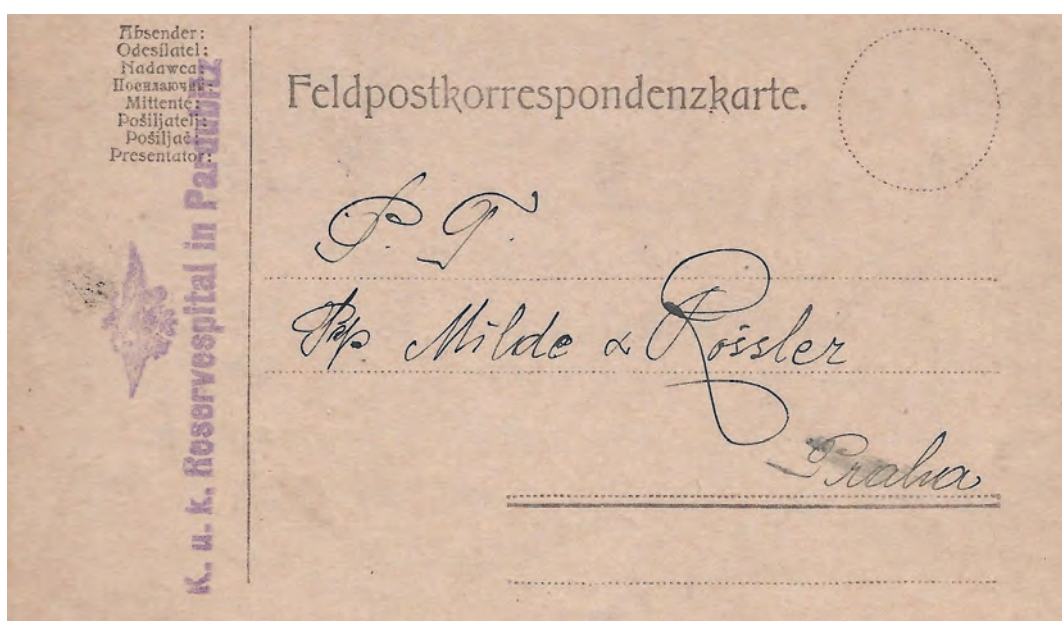 Absender:
Odesílatel:
Nadawca:
Посилаючий:
Mittente:
Pošiljatelj:
Pošiljač:
Presentator:
K. u. k. Reservespital in Pardubitz
Feldpostkorrespondenzkarte.
P. T.
Pp Milde & Rössler
Praha